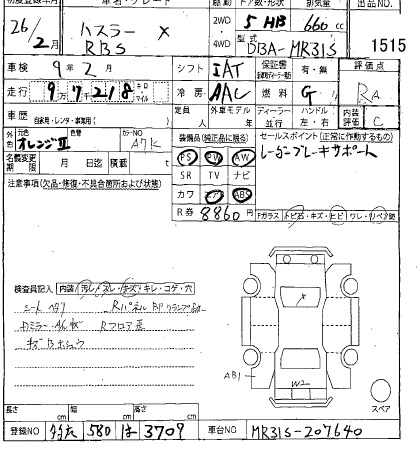 初度登録年月 車名・グレード 駆動 ドア数・形状 排気量 出品NO.
26/2月 ハスラー X RBS 2WD・4WD 5 HB 660 cc
型式 DBA-MR31S 1515
車検 9年2月 シフト IAT 保証書 有・無 評価点
走行 9万7千218 キロ マイル 冷房 AAC 燃料 G RA
車歴 自家用・レンタ・事業用( ) 定員 外車モデル 年 ディーラー・並行 ハンドル 左・右 内装評価 C
外色 元色 オレンジⅡ 色替 カラーNO A7K 装備品(純正品に限る) セールスポイント(正常に作動するもの)
名義変更期限 月 日迄 積載 t PS PW AW レーダーブレーキサポート
注意事項(欠品・修復・不具合箇所および状態) SR TV ナビ
カワ エアB ABS
R券 8860 Fガラス トビ石・キズ・ヒビ ワレ・(リペア)跡
検査員記入 内装 汚レ・スレ・キズ・キレ・コゲ・穴
シートヘタリ Rパネル BP クランプ跡
Dミラー・A/K傷 Rフロア歪
キズ Bホシュウ
X
AB1
W2
スペア
長さ cm 幅 cm 高さ cm
登録NO 580 は 3709 車台NO MR31S-207640